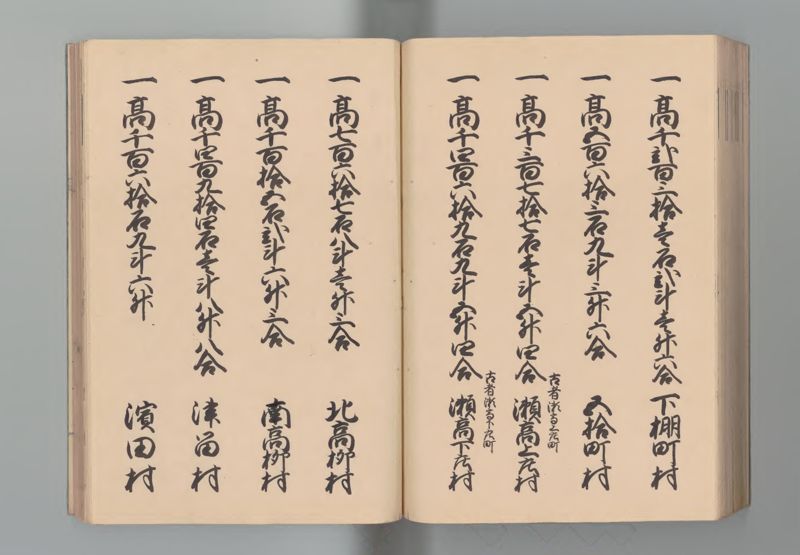 一高千弐百三拾壱石弐斗壱升六合 下棚町村
一高五百六拾三石九斗三升六合 五拾町村
一高千三百七拾七石壱斗五升四合 瀬高上庄村
古者瀬高上庄町
一高千四百六拾九石九斗五升四合 瀬高下庄村
古者瀬高下庄町
一高七百六拾七石八斗壱升三合 北高柳村
一高千百拾五石弐斗六升三合 南高柳村
一高千四百九拾四石壱斗八升八合 津留村
一高千百六拾石九斗六升 濱田村